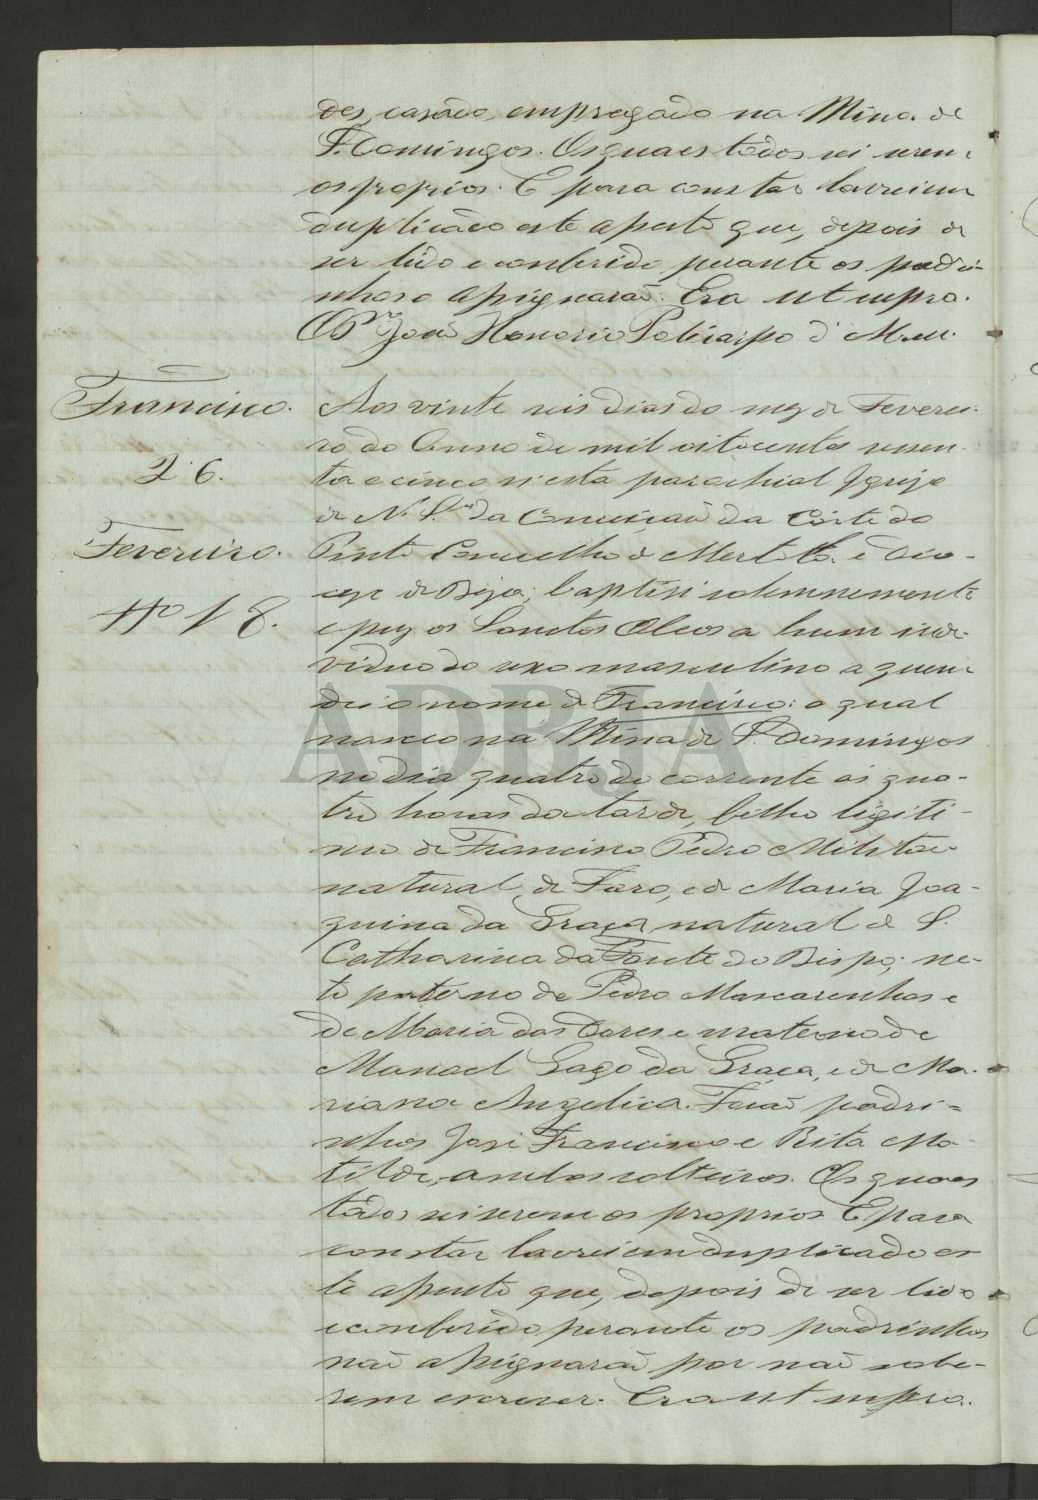 des, casado, empregado na Mina de
S. Domingos. Os quaes todos sei serem
os proprios. E para constar lavrei em
duplicado este assento que, depois de
ser lido e conferido perante os padri-
nhos o assignarão. Era ut supra.
O Pr. João Honorio Policarpo d'
Francisco. Aos vinte seis dias do mez de Feverei-
ro do Anno de mil oitocentos sessen-
26. ta e cinco n'esta parochial Igreja
de N. Srª da Conceição da Côrte do
Fevereiro. Pinto Concelho de Mertola e Dio-
cese de Beja; baptisei solemnemente
Nº 18. e puz os Sanctos Oleos a hum indi-
viduo do sexo masculino a quem
dei o nome de Francisco: o qual
nasceo na Mina de S. Domingos
no dia quatro do corrente ás qua-
tro horas da tarde, filho legiti-
mo de Francisco Pedro
natural de Faro, e de Maria Joa-
quina da Graça natural de S.
Catharina da Fonte do Bispo; ne-
to paterno de Pedro Mascarenhas e
de Maria das Dores e materno de
Manoel Gago da Graça, e de Ma-
riana Angelica. Forão padri-
nhos José Francisco e Rita Ma-
tilde, ambos solteiros. Os quaes
todos sei serem os proprios E para
constar lavrei em duplicado es-
te assento que, depois de ser lido
e conferido perante os padrinhos
não assignarão por não sabe-
rem escrever. Era ut supra.
ADBJA